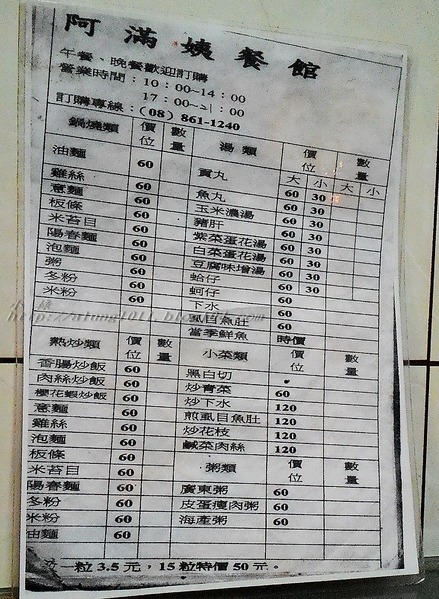 阿滿姨餐館
午餐、晚餐歡迎訂購
營業時間：10：00~14：00
17：00~21：00
訂購專線：(08) 861-1240
鍋燒類 價位 數量 湯類 價位 數量
大 小 大 小
油麵 60 貢丸 60 30
雞絲 60 魚丸 60 30
意麵 60 玉米濃湯 60 30
板條 60 豬肝 60 30
米苔目 60 紫菜蛋花湯 60 30
陽春麵 60 白菜蛋花湯 60 30
泡麵 60 豆腐味增湯 60 30
粥 60 蛤仔 60
冬粉 60 蚵仔 60
米粉 60 下水 60
虱目魚肚 60
當季鮮魚 時價
熱炒類 價位 數量 小菜類 價位 數量
香腸炒飯 60 黑白切
肉絲炒飯 60 炒青菜 60
櫻花蝦炒飯 60 炒下水 120
意麵 60 煎虱目魚肚 120
雞絲 60 炒花枝 120
泡麵 60 鹹菜肉絲 120
板條 60 粥類 價位 數量
米苔目 60
陽春麵 60 廣東粥 60
冬粉 60 皮蛋瘦肉粥 60
米粉 60 海產粥 60
油麵 60
一粒3.5元，15粒特價50元。